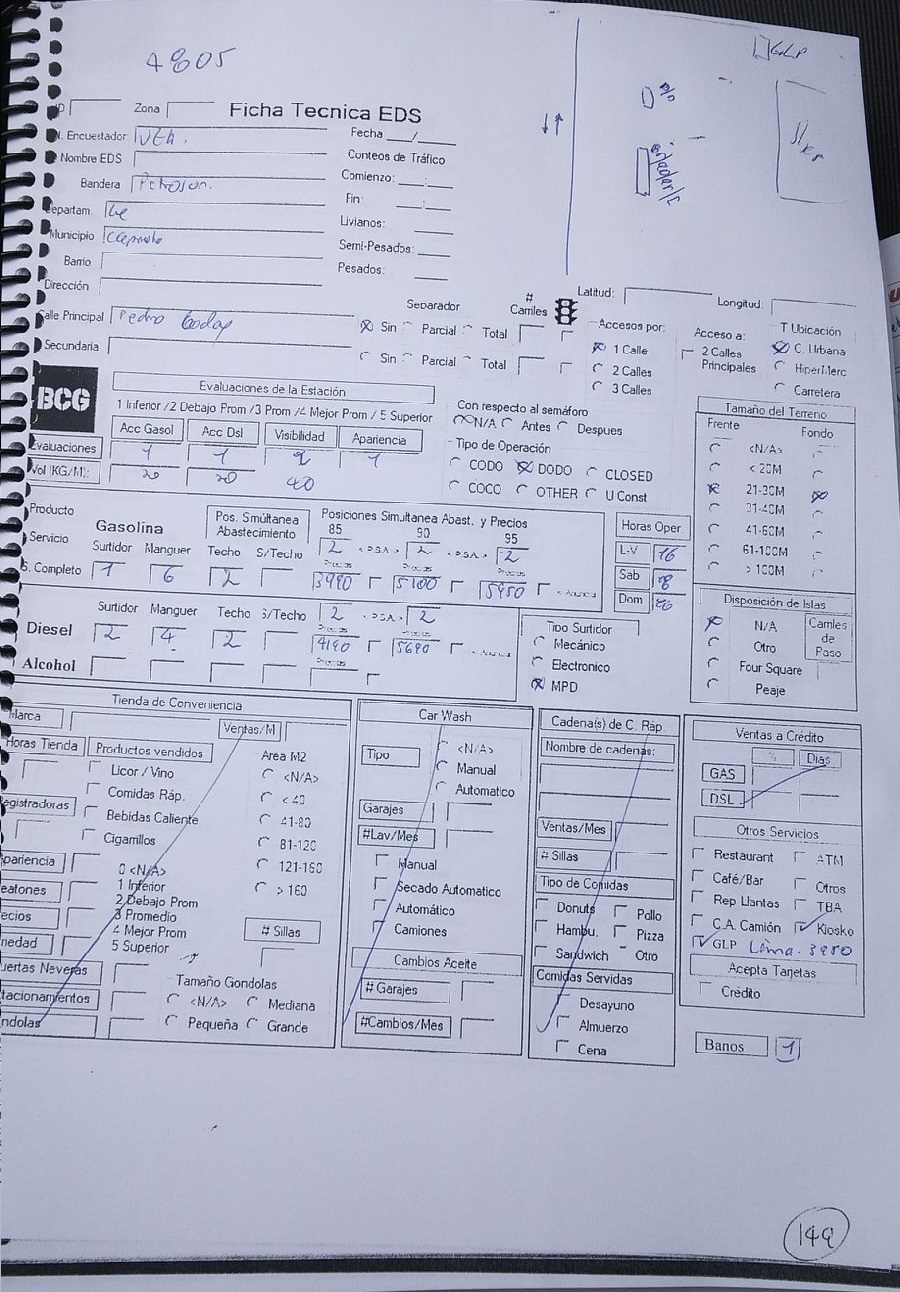 4805
GLP
Zona
Ficha Tecnica EDS
Encuestador
Fecha
Nombre EDS
Conteos de Tráfico
Bandera
Comienzo:
Fin:
Departam.
Livianos:
Municipio
Semi-Pesados:
Barrio
Pesados:
Dirección
Latitud:
Longitud:
Calle Principal Pedro Godoy
Separador
# Carriles
Sin Parcial Total
Secundaria
Sin Parcial Total
Accesos por:
1 Calle
2 Calles
3 Calles
Acceso a:
2 Calles Principales
T Ubicación
C. Urbana
HiperMerc
Carretera
BCG
Evaluaciones de la Estación
1 Inferior /2 Debajo Prom /3 Prom /4 Mejor Prom /5 Superior
Acc Gasol Acc Dsl Visibilidad Apariencia
Evaluaciones 1 1 2 1
Vol (KG/M): 20 20 40
Con respecto al semáforo
N/A Antes Despues
Tipo de Operación
CODO DODO CLOSED
COCO OTHER U Const
Tamaño del Terreno
Frente Fondo
<N/A>
< 20M
21-30M
31-40M
41-60M
61-100M
> 100M
Producto
Servicio
S. Completo
Gasolina
Pos. Smúltanea Abastecimiento
Posiciones Simultanea Abast. y Precios
85 90 95
Surtidor Manguer Techo S/Techo
2 2 2
1 6 2
5100
Horas Oper
L-V 16
Sab
Dom
Diesel
Surtidor Manguer Techo S/Techo
2 4 2
2 2
4190 5690
Alcohol
Tipo Surtidor
Mecánico
Electronico
MPD
Disposición de Islas
N/A
Otro
Four Square
Peaje
Carriles de Paso
Tienda de Conveniencia
Marca
Ventas/M
Horas Tienda
Productos vendidos
Licor / Vino
Comidas Ráp.
Bebidas Caliente
Cigarrillos
Registradoras
Area M2
<N/A>
< 40
41-80
81-120
121-160
> 160
Apariencia
0 <N/A>
1 Inferior
2 Debajo Prom
3 Promedio
4 Mejor Prom
5 Superior
# Sillas
Puertas Neveras
Tamaño Gondolas
<N/A> Mediana
Pequeña Grande
Car Wash
Tipo
<N/A>
Manual
Automatico
Garajes
#Lav/Mes
Manual
Secado Automatico
Automático
Camiones
Cambios Aceite
# Garajes
#Cambios/Mes
Cadena(s) de C. Ráp.
Nombre de cadenas:
Ventas/Mes
# Sillas
Tipo de Comidas
Donuts Pollo
Hambu. Pizza
Sandwich Otro
Comidas Servidas
Desayuno
Almuerzo
Cena
Ventas a Crédito
% Dias
GAS
DSL
Otros Servicios
Restaurant ATM
Café/Bar Otros
Rep Llantas TBA
C.A. Camión Kiosko
GLP Lima. 3950
Acepta Tarjetas
Crédito
Banos 1
149